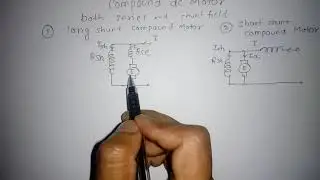 Compound dc Motor
both series and shunt field
① long shunt compound Motor
② Short shunt
compound Motor
I
Ish
Rse
Rsh
I
Ish
Rsh
E